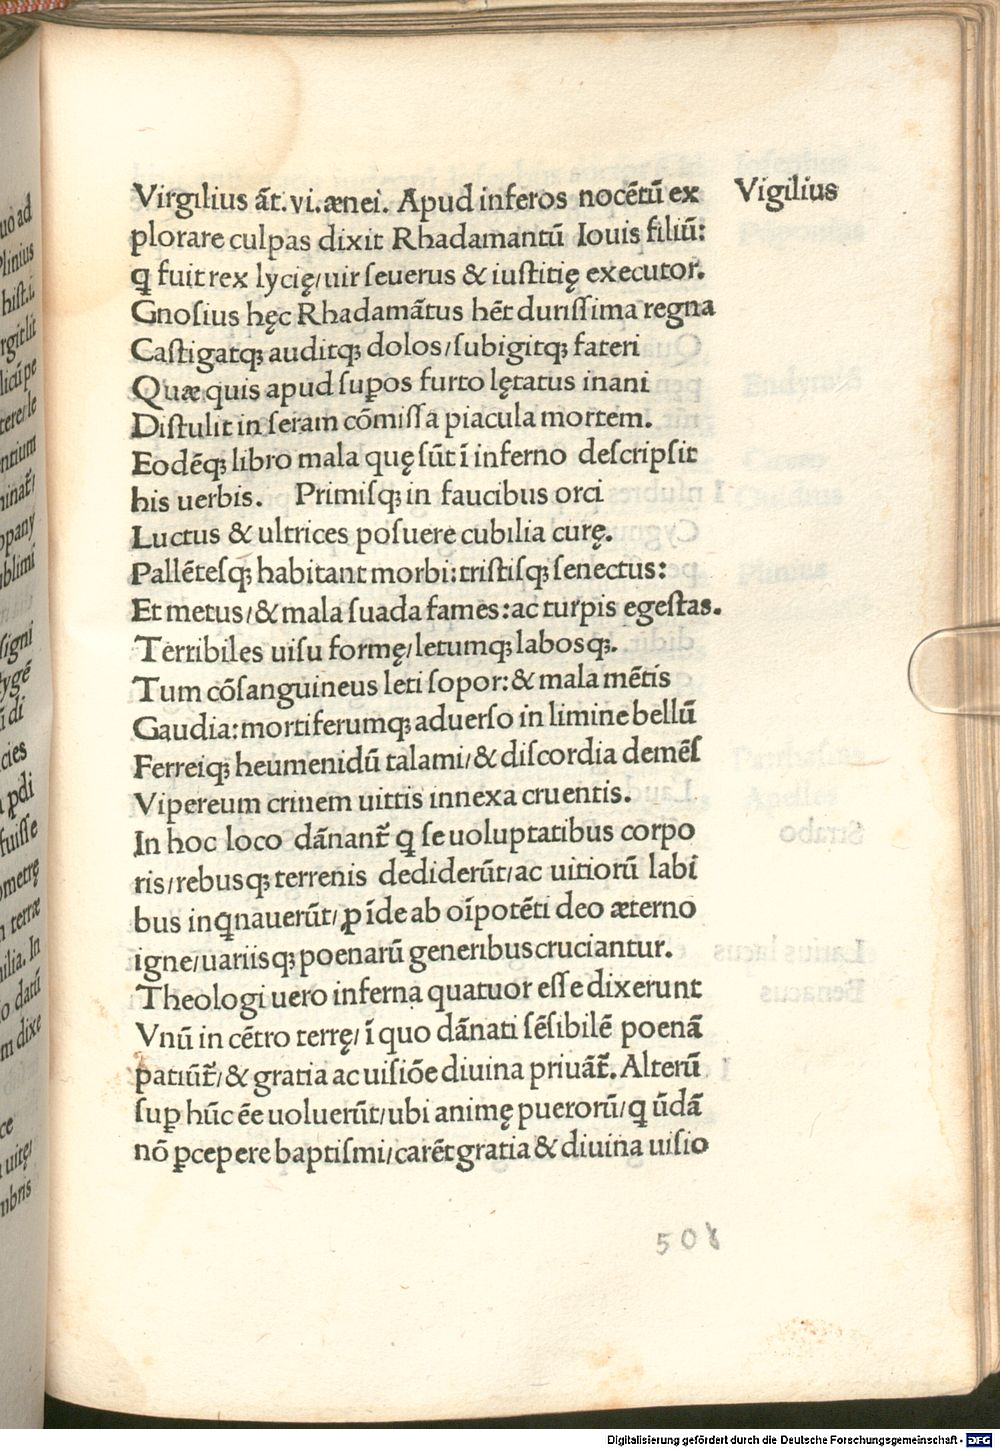 Virgilius āt. vi. ænei. Apud inferos nocētū ex
Vigilius
plorare culpas dixit Rhadamantū Iouis filiū:
ꝗ fuit rex lycię/uir ſeuerus & iuſtitię executor.
Gnoſius hęc Rhadamātus hēt duriſſima regna
Caſtigatqꝫ auditqꝫ dolos/ſubigitqꝫ fateri
Quæ quis apud ſuꝑos furto lętatus inani
Diſtulit in ſeram cōmiſſa piacula mortem.
Eodēqꝫ libro mala quę ſūt ī inferno deſcripſit
his uerbis. Primiſqꝫ in faucibus orci
Luctus & ultrices poſuere cubilia curę.
Pallēteſqꝫ habitant morbi: triſtiſqꝫ ſenectus:
Et metus/& mala ſuada fames: ac turpis egeſtas.
Terribiles uiſu formę/letumqꝫ labosqꝫ.
Tum cōſanguineus leti ſopor: & mala mētis
Gaudia: mortiferumqꝫ aduerſo in limine bellū
Ferreiqꝫ heumenidū talami/& diſcordia demēſ
Vipereum crinem uittis innexa cruentis.
In hoc loco dānant᷑ ꝗ ſe uoluptatibus corpo
ris/rebusqꝫ terrenis dediderūt/ac uitiorū labi
bus inꝗnauerūt/ꝓ īde ab oīpotēti deo æterno
igne/uariisqꝫ poenarū generibus cruciantur.
Theologi uero inferna quatuor eſſe dixerunt
Vnū in cētro terrę/ ī quo dānati ſēſibilē poenā
patiūt᷑/& gratia ac uiſiōe diuina priuāt᷑. Alterū
ſuꝑ hūc ēe uoluerūt/ubi animę puerorū/ꝗ ūdā
nō ꝑcepere baptiſmi/carēt gratia & diuina uiſio
508
Digitalisierung gefördert durch die Deutsche Forschungsgemeinschaft - DFG